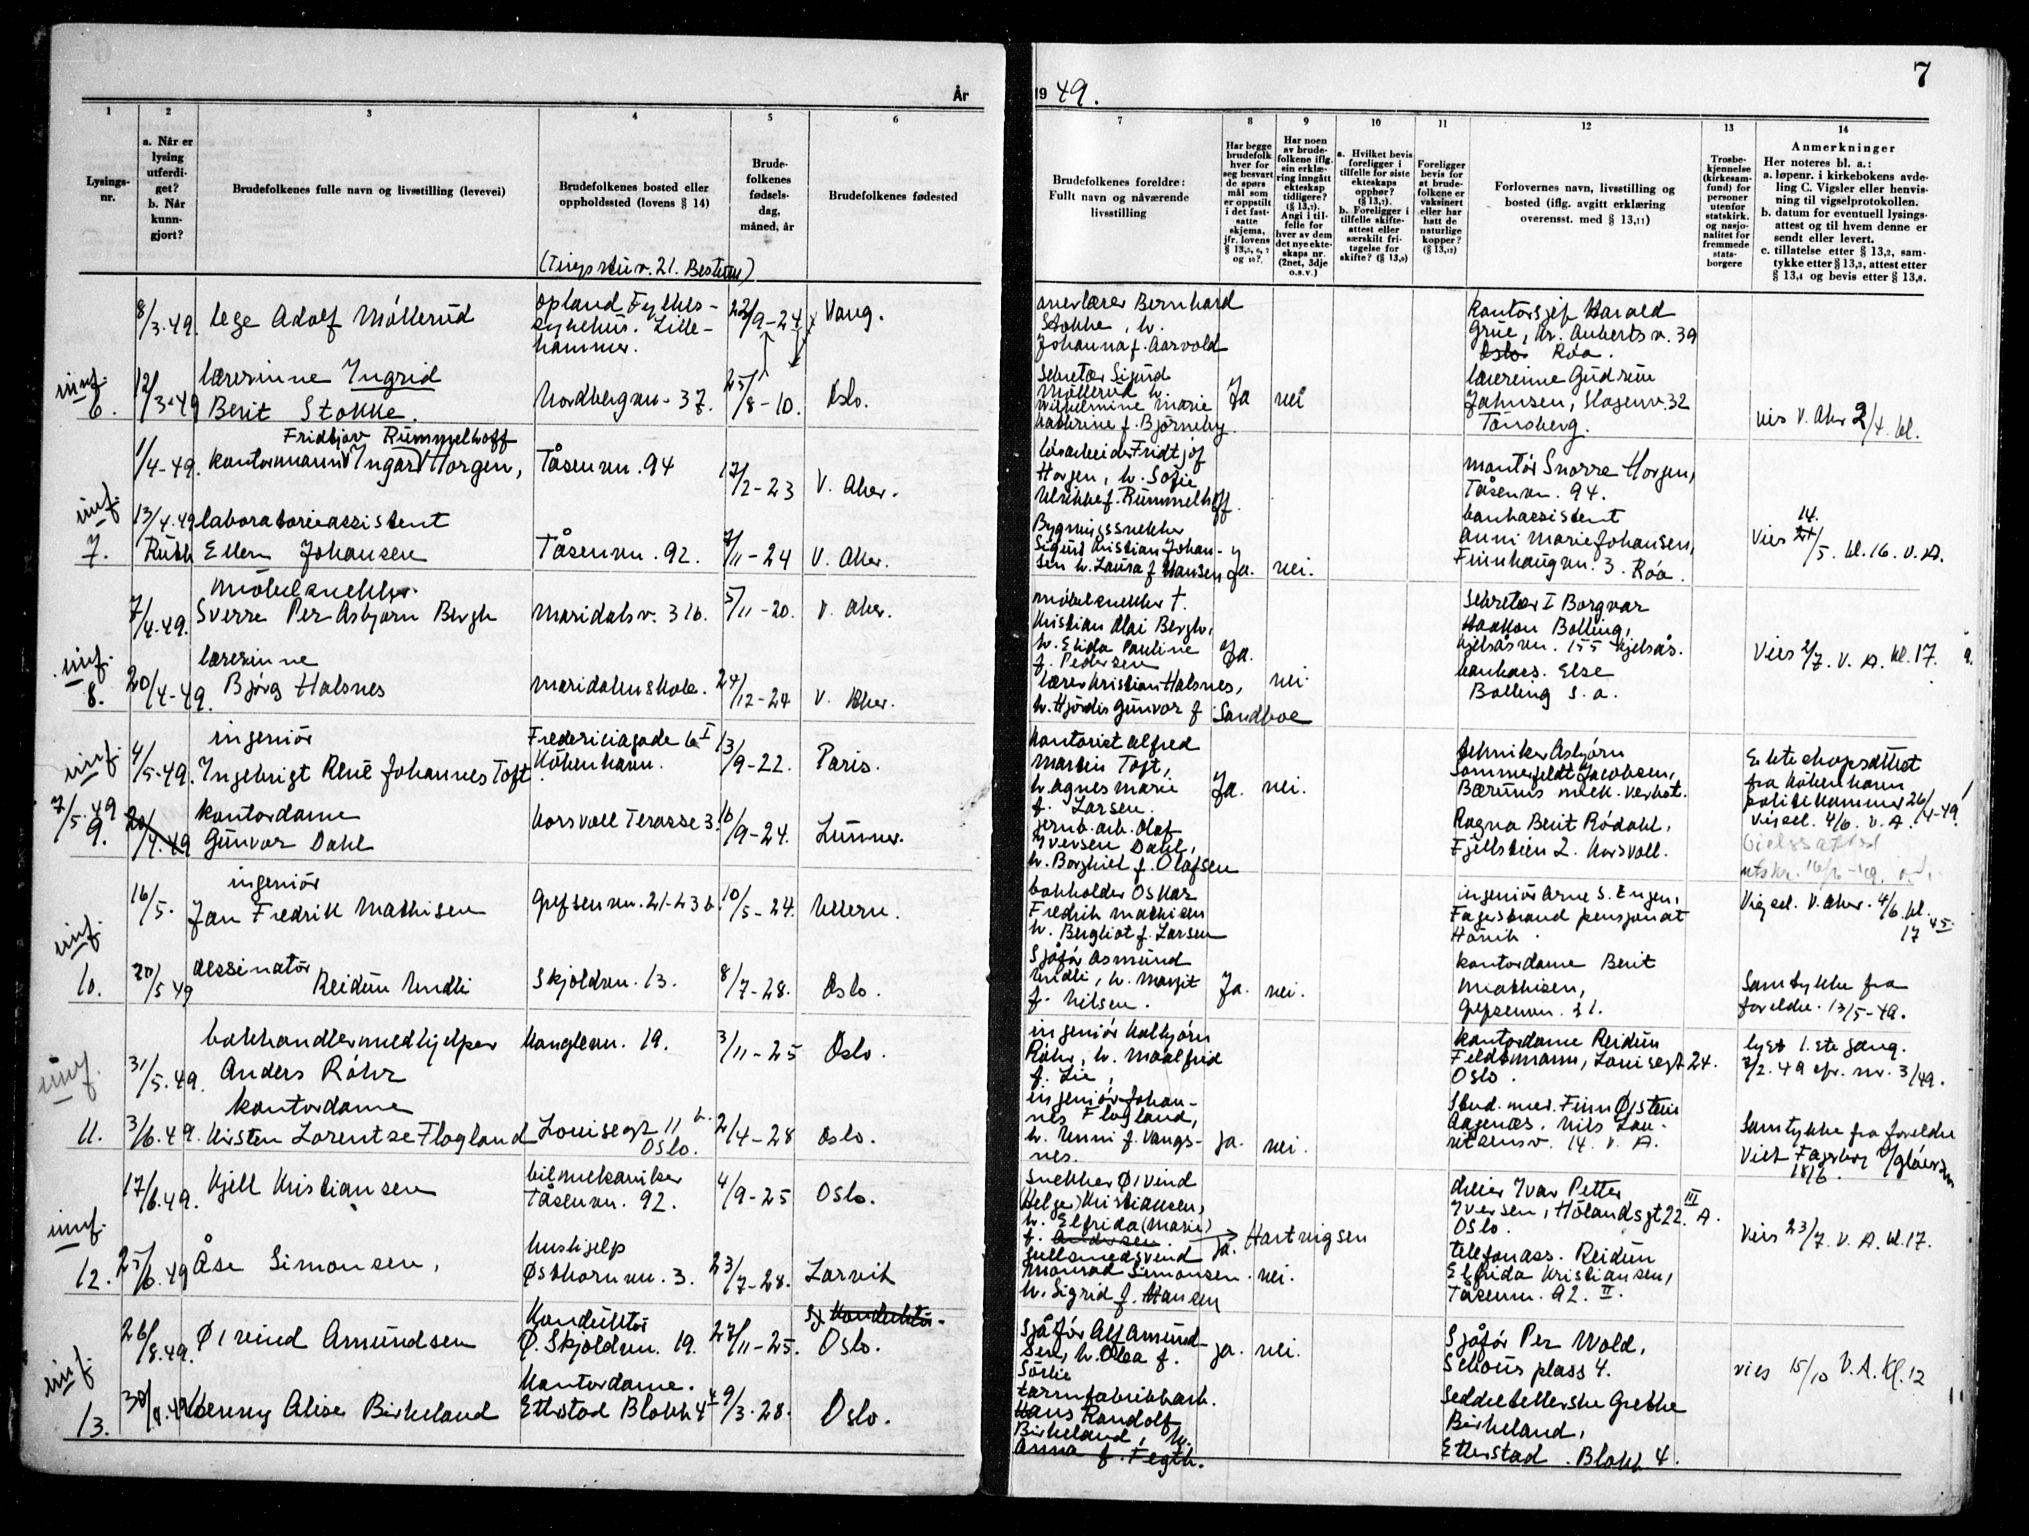 År
1949.
7
1
2
3
4
5
6
7
8
9
10
11
12
13
14
Lysings-
nr.
a. Når er
lysing
utferdi-
get?
b. Når
kunn-
gjort?
Brudefolkenes fulle navn og livsstilling (levevei)
Brudefolkenes bosted eller
oppholdssted (lovens § 14)
Brude-
folkenes
fødsels-
dag,
måned, år
Brudefolkenes fødested
Brudefolkenes foreldre:
Fullt navn og nåværende
livsstilling
Har begge
brudefolk
hver for
seg besvart
de spørs
mål som
er oppstilt
i det fast-
satte
skjema,
jfr. lovens
§ 13,5, 6, 7
og 10?
Har noen
av brude-
folkene iflg.
sin erklæ-
ring inngått
ekteskap
tidligere?
Angi i til-
felle for
hver av dem
det nye ekte-
skaps nr.
(2net, 3dje
o.s.v.)
a. Hvilket bevis
foreligger i
tilfelle for siste
ekteskaps
opphør?
b. Foreligger i
tilfelle skifte-
attest eller
særskilt fri-
tagelse for
skifte? (§ 13,9)
Foreligger
bevis for
at brude-
folkene er
vaksinert
eller har
hatt de
naturlige
kopper?
(§ 13,12)
Forlovernes navn, livsstilling og
bosted (iflg. avgitt erklæring
overensst. med § 13,11)
Trosbe-
kjennelse
(kirkesam-
fund) for
personer
utenfor
statskirk.
og nasjo-
nalitet for
fremmede
stats-
borgere
Anmerkninger
Her noteres bl. a.:
a. løpenr. i kirkebokens avde-
ling C. Vigsler eller henvis-
ning til vigselprotokollen.
b. datum for eventuell lysings-
attest og til hvem denne er
sendt eller levert.
c. tillatelse etter § 13,2, sam-
tykke etter § 13,3, attest etter
§ 13,4 og bevis etter § 13,8.
8/3.49.
lege Adolf Møllerud
Opland Fylkes-
sykehus. Lille-
hammer.
Vang.
Stokke, h.
Johanna f. Aarvold
kontorsjef Harald
Grue, hr. Auberts v. 39
Oslo Røa.
6.
12/3-49
lærerinne Ingrid
Berit Stokke.
Nordbergvn. 37.
25/8-10.
Oslo.
Sekretær Sigurd
Møllerud h.
Wilhelmine Marie
Kathrine f. Bjørneby.
Ja
nei
lærerinne Gudrun
Johnsen, Slagenv. 32
Tønsberg.
vies V. Aker 2/4. kl.
1/4-49.
Fridtjov Rummelhoff
kontormann Ingar Horgen,
Tåsenvn. 94
17/2-23
V. Aker.
Horgen, h. Sofie
Ulrikke f. Rummelhoff.
montør Snorre Horgen,
Tåsenvn. 94.
7.
13/4.49
laboratorieassistent
Ruth Ellen Johansen
Tåsenvn. 92.
7/11-24
V. Aker.
Bygningssnekker
Sigurd Kristian Johan-
sen h. Laura f. Hansen
Ja.
nei.
bankassistent
Anni Marie Johansen,
Finnhaugvn. 3. Røa.
Vies 14/5. kl. 16. V. A.
7/4-49.
møbelsnekker
Sverre Per Asbjørn Bergh
Maridalsv. 316.
5/11-20.
V. Aker.
møbelsnekker †.
Kristian Olai Bergh,
h. Elida Pauline
f. Pedersen
Ja.
Sekretær I Borgvar
Haakon Bolling,
Kjelsåsvn. 155 Kjelsås.
Vies 2/7. V. A. kl. 17.
8.
20/4-49.
lærerinne
Bjørg Halsnes
Maridalen skole.
24/12-24
V. Aker.
lærer Kristian Halsnes,
h. Hjørdis Gunvor f Sandboe
nei.
bankass. Else
Bolling s. a.
4/5-49.
ingeniør
Ingebrigt René Johannes Toft
Fredericiagade 6 I
København.
13/9-22.
Paris.
kontorist Alfred
Martin Toft,
h. Agnes Marie
f. Larsen.
Ja.
nei.
tekniker Asbjørn
Sommerfeldt Jacobsen,
Bærums mek. verkst.
Ekteskapsattest
fra Københavns
politikammer 26/4-49!
Vigsel. 4/6. V. A.
7/5.49
9.
20/4.49
kontordame
Gunvor Dahl
Korsvoll Terasse 3.
16/9-24.
Lunner.
jernb. arb. Olaf
Iversen Dahl,
h. Borghild f. Olafsen
Ragna Berit Rødahl,
Fjellstien 2. Korsvoll.
16/5.
ingeniør
Jan Fredrik Mathisen
Grefsenvn. 21-23 b.
10/5-24.
Ullern.
bokholder Oskar
Fredrik Mathisen
h. Bergliot f. Larsen
ingeniør Arne S. Engen,
Fagerstrand pensjonat
Høvik.
Vigsel. V. Aker. 4/6 kl.
17 45
10.
20/5 49
dessinatør
Reidun Undli
Skjoldvn. 13.
8/7-28.
Oslo.
Sjåfør Asmund
Undli, h. Margit
f. Nilsen.
Ja.
nei.
kontordame Berit
Mathisen,
Grefsenvn. 21.
Samtykke fra
foreldre. 13/5-49.
31/5.49.
bokhandlermedhjelper
Anders Röhr
Konglevn. 19.
3/11-25
Oslo.
ingeniør Kolbjørn
Röhr, h. Maalfrid
f. Lie,
kontordame Reidun
Feldtmann, Louisegt 24.
Oslo.
lyst 1. ste gang.
11.
3/6.49.
kontordame
Kirsten Lorentze Flogland
Louisegt 11 b.
Oslo.
2/4-28
Oslo.
ingeniør Johan-
nes Flogland,
h. Unni f. Vangs-
nes.
ja.
nei.
Stud. mer. Finn Øistein
Aagenæs, Nils Lau-
ritsensv. 14. V. A.
Samtykke fra foreldre
Viet Fagerborg
18/6.
17/6.49.
Kjell Kristiansen
bilmekaniker
Tåsenvn. 92.
4/9-25
Oslo.
snekker Øivind
(Helger) Kristiansen,
h. Elfrida (Marie)
f. Andersen → Hartvigsen
ja.
Ivar Petter
Iversen, Hølandsgt 22. III A.
Oslo.
Vies 23/7. V. A. kl. 17.
12.
25/6.49
Åse Simonsen,
hushjelp
Østhornvn. 3.
23/7-28.
Larvik
gullsmedsvend
Monrad Simonsen.
h. Sigrid f. Hansen
nei.
telefonass. Reidun
Elfrida Kristiansen,
Tåsenvn. 92 II.
26/8.49.
Øivind Amundsen
Konduktør
Ø. Skjoldvn. 19.
27/11-25.
Oslo.
Sjåfør Alf Amund-
sen, h. Olea f.
Sörlie
ja.
nei.
Sjåfør Per Wold,
Schous plass 4.
vies 15/10 V. A. Kl. 12
13.
Jenny Alise Birkeland
Kontordame.
Etterstad Blokk 4
9/3.28.
Oslo.
tarmfabrikkarb.
Hans Randolf
Birkeland, h.
Anna f. Fegth.
Birkeland,
Etterstad. Blokk 4.